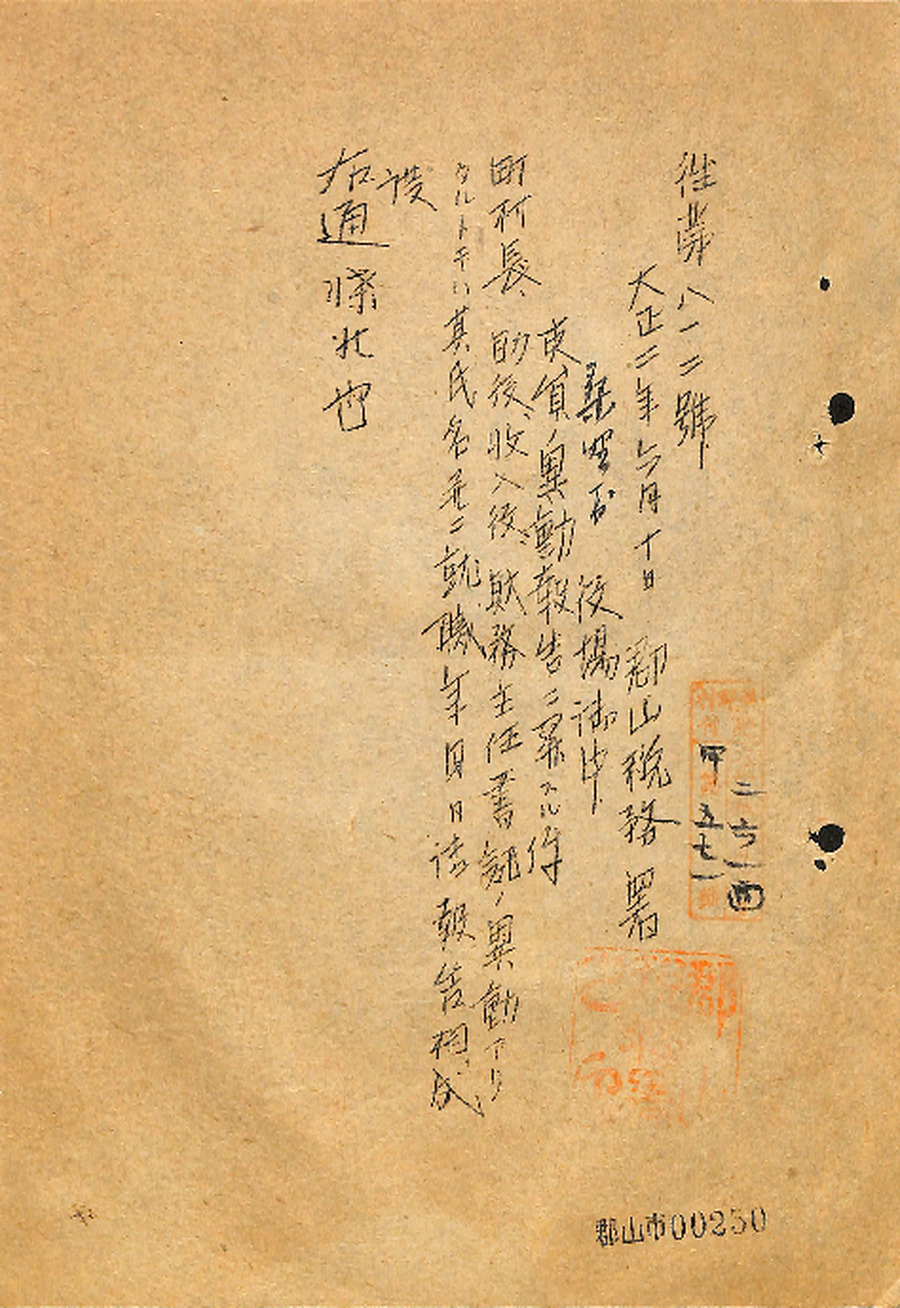 往第八一二號
大正二年六月十日 郡山税務署
桑野村 役場御中
吏員ノ異動報告ニ関スル件
町村長、助役、收入役、財務主任書記ノ異動アリ
タルトキハ其氏名並ニ就職年月日御報告相成
度
右通牒候也
二六一四
甲五七一
郡
郡山市00250